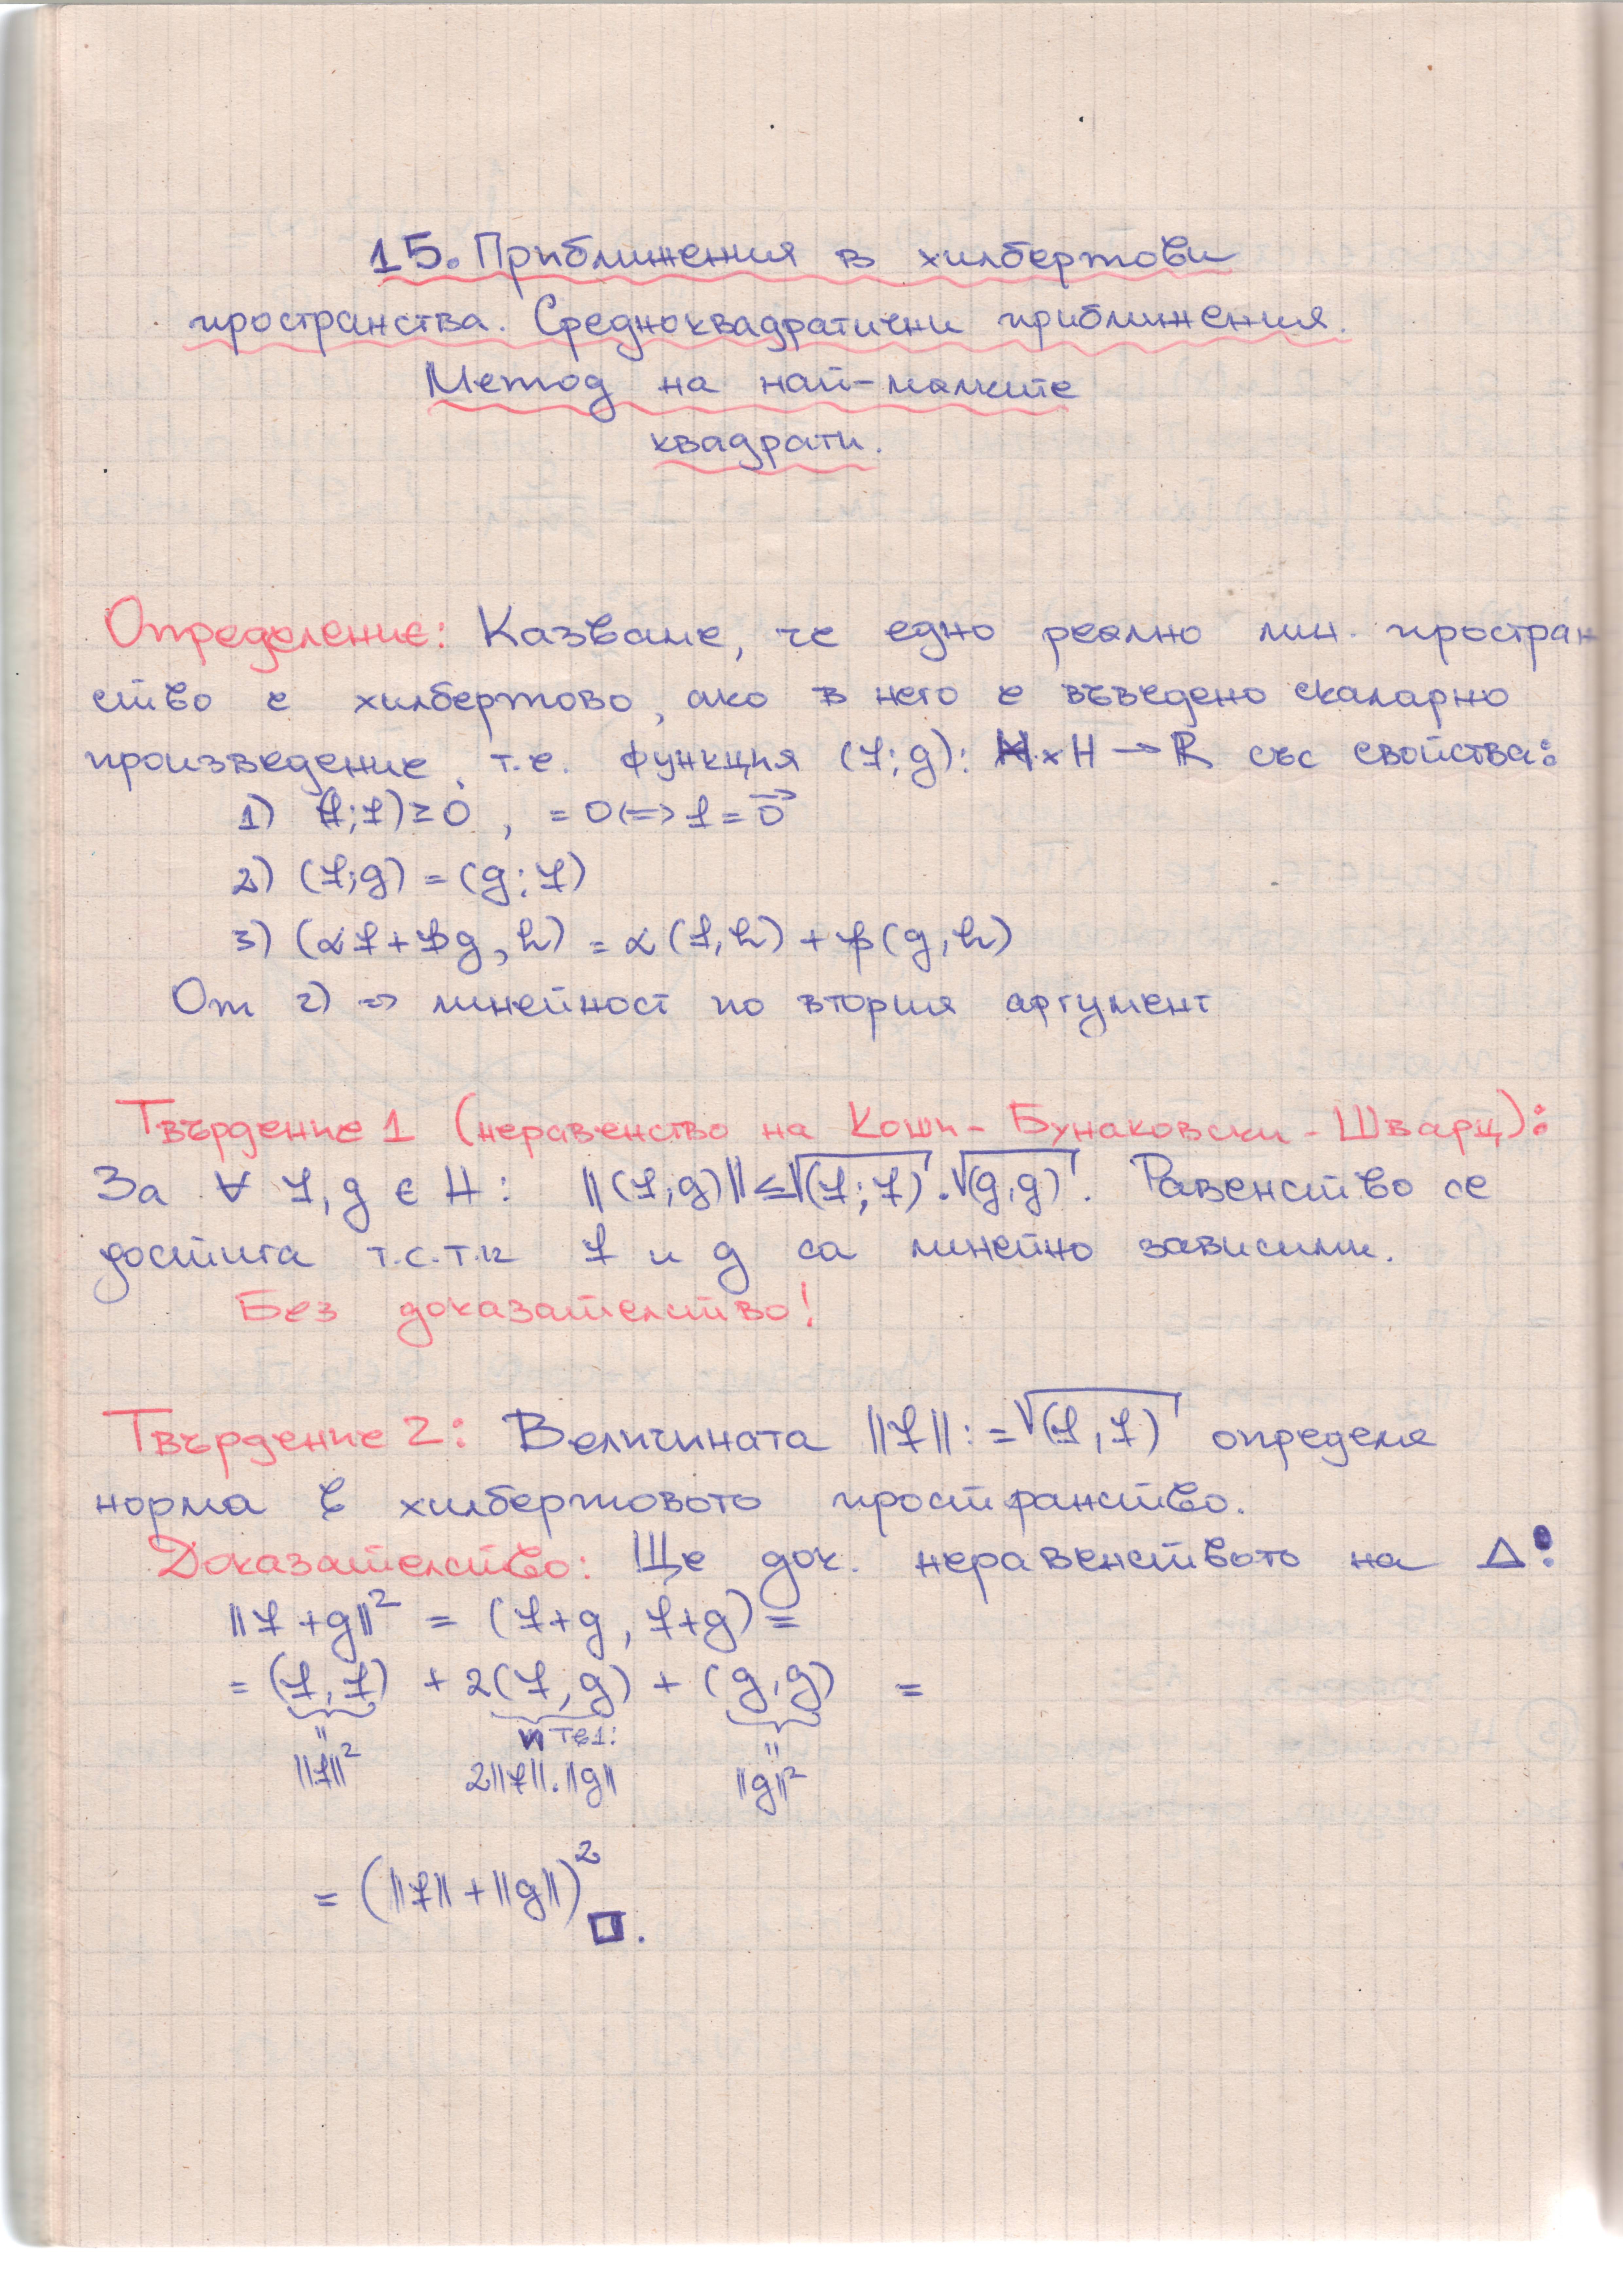 15. Приближения в хилбертови
пространства. Средноквадратични приближения.
Метод на най-малките
квадрати.
Определение: Казваме, че едно реално лин. простран
ство е хилбертово, ако в него е въведено скаларно
произведение, т.е. функция (f;g): H×H→ℝ със свойства:
1) (f;f)≥0, =0⇔f=0⃗
2) (f;g)=(g;f)
3) (αf+βg,h)=α(f,h)+β(g,h)
От 2) ⇒ линейност по втория аргумент
Твърдение 1 (неравенство на Коши-Бунаковски-Шварц):
За ∀ f,g ∈ H: ||(f;g)||≤√(f;f).√(g,g). Равенство се
достига т.с.т.к f и g са линейно зависими.
Без доказателство!
Твърдение 2: Величината ||f||:=√(f,f) определя
норма в хилбертовото пространство.
Доказателство: Ще док. неравенството на Δ!
||f+g||² = (f+g, f+g)=
= (f,f) + 2(f,g) + (g,g) =
|| ≤ Тв1: ||
||f||² 2||f||.||g|| ||g||²
= (||f||+||g||)² □.